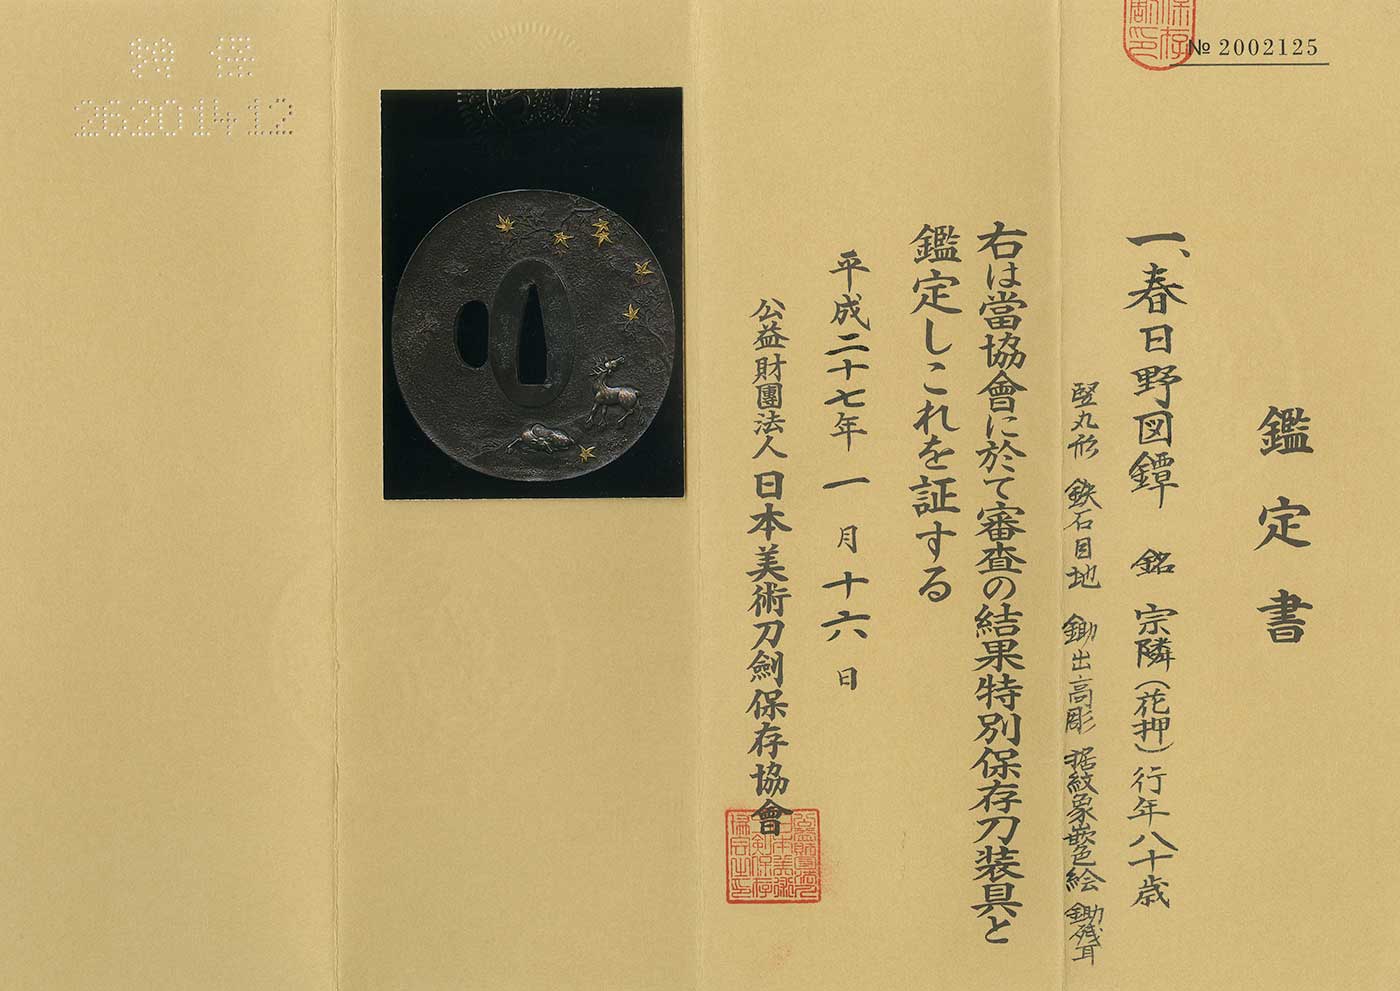 № 2002125
鑑定書
一、春日野図鐔 銘 宗隣(花押)行年八十歳
竪丸形 鉄石目地 鋤出高彫 据紋象嵌色絵 鋤残耳
右は當協會に於て審査の結果特別保存刀装具と
鑑定しこれを証する
平成二十七年一月十六日
公益財團法人日本美術刀劍保存協會
26201412